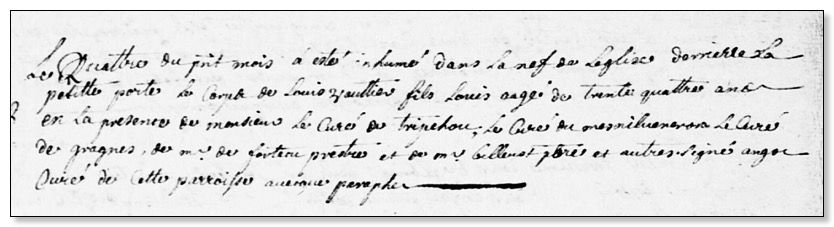 Le Quattre du pnt mois a esté inhumé dans la nef de Leglise derriere La
petitte porte Le Corps de Louis vaultier fils Louis aagé de trente quattre ans
en La presence de monsieur Le Curé de tripehou, Le Curé du mesnilueneron Le Curé
de graignes, de mr. de fortecu prestre et de mr. ptre et autres signé angot
Curé de Cette parroisse auecque paraphe